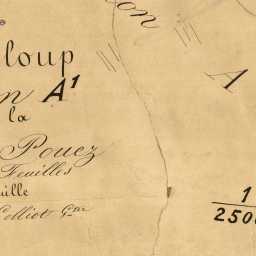 loup
on
n A¹
A
la
Pouez
Feuilles
uille
Colliot Gtre
1
250